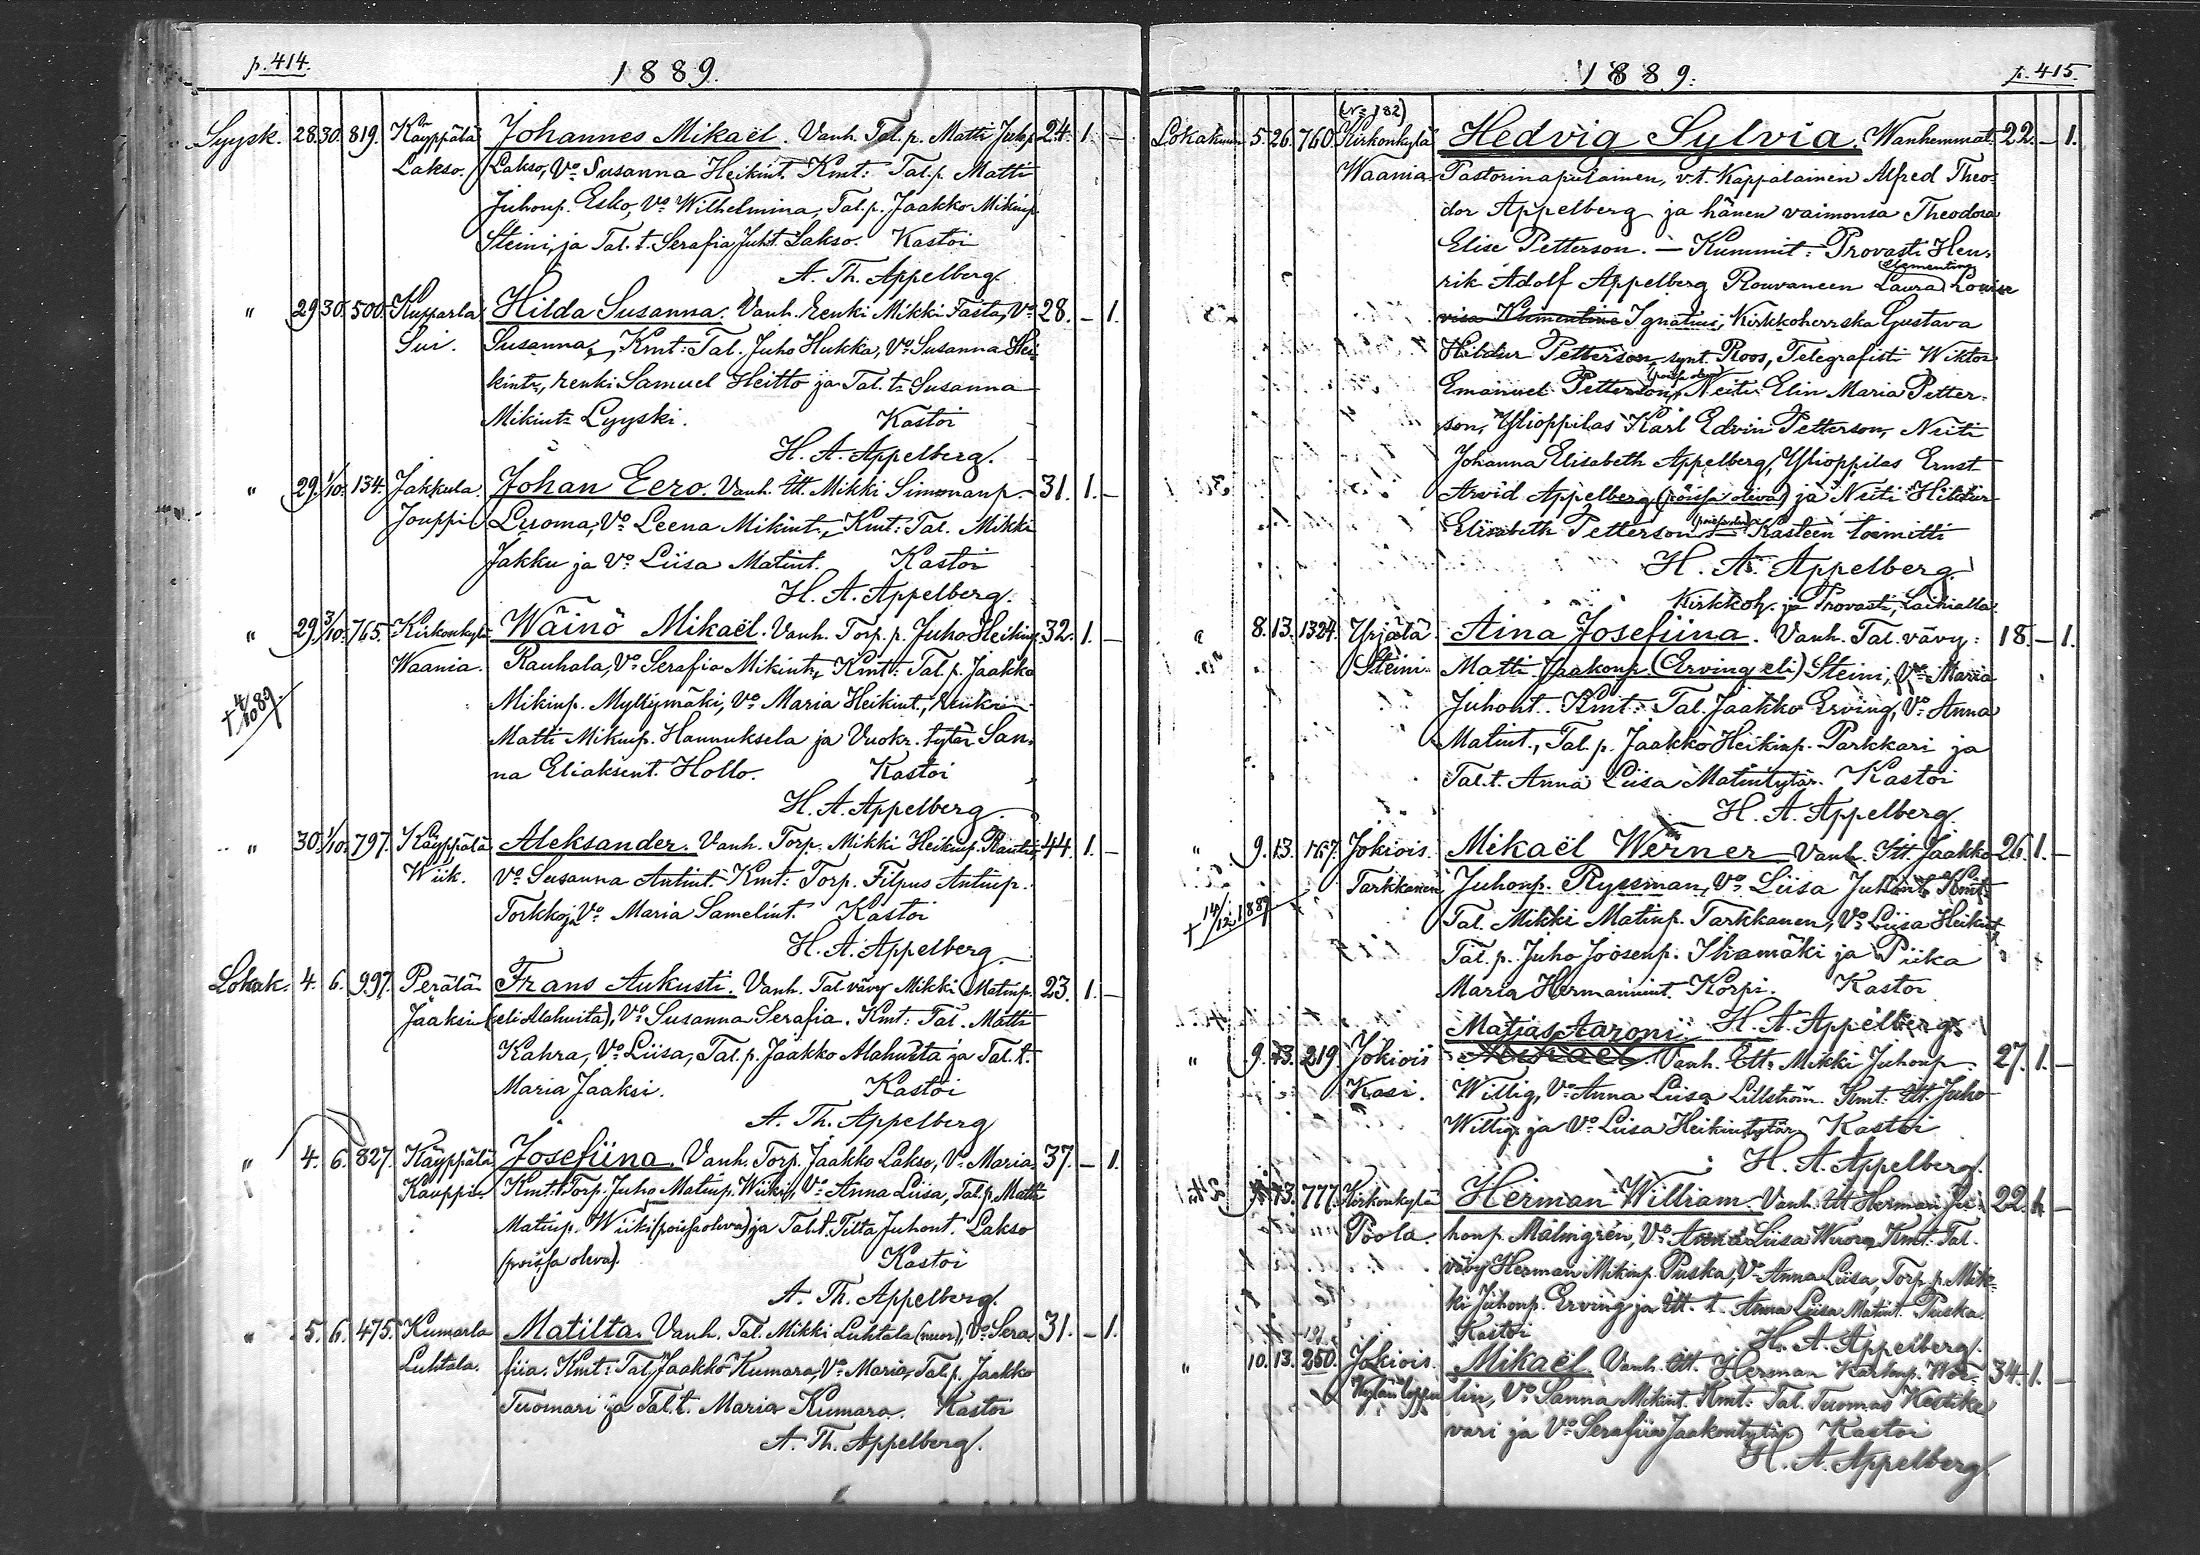 p. 414.
1889.
Syysk. 28. 30. 819. Käyppälä Johannes Mikaël. Vanh. Tal. p. Matti Juhop. 24. 1. –
Lakso. Lakso, Vo Susanna Heikint. Kmt: Tal. p. Matti
Juhonp. Esko, Vo Wilhelmina, Tal. p. Jaakko Mikinp.
Steini, ja Tal. t. Serafia Juht. Lakso. Kastoi
A. Th. Appelberg.
" 29. 30. 500. Kupparla Hilda Susanna. Vanh. Renki Mikki Fasta, Vo 28. – 1.
Sui. Susanna, Kmt: Tal. Juho Hukka, Vo Susanna Hei
kint., renki Samuel Heitto ja Tal. t. Susanna
Mikint. Lyyski. Kastoi
H. A. Appelberg.
" 29. 1/10. 134. Jakkula Johan Eero. Vanh. Itt. Mikki Simonanp. 31. 1. –
Jouppi Luoma, Vo Leena Mikint., Kmt: Tal. Mikki
Jakku ja Vo Liisa Matint. Kastoi
H. A. Appelberg.
" 29. 3/10. 765. Kirkonkylä Wäinö Mikaël. Vanh. Torp. p. Juho Heikinp. 32. 1. –
Waania. Rauhala, Vo Serafia Mikint., Kmt: Tal. p. Jaakko
Mikinp. Myllymäki, Vo Maria Heikint., Renki
† 4/10 89. Matti Mikinp. Hannuksela ja Vuokr. tytär San=
na Eliaksent. Hollo. Kastoi
H. A. Appelberg.
" 30. 1/10. 797. Käyppälä Aleksander. Vanh. Torp. Mikki Heikinp. 44. 1. –
Wiik. Vo Susanna Antint. Kmt: Torp. Filpus Antinp.
Torkko, Vo Maria Samelint. Kastoi
H. A. Appelberg.
Lokak. 4. 6. 997. Perätä Frans Aukusti. Vanh. Tal vävy Mikki Matinp. 23. 1. –
Jaaksi (eli Alahuita), Vo Susanna Serafia. Kmt: Tal. Matti
Kahra, Vo Liisa, Tal. p. Jaakko Alahuita ja Tal. t.
Maria Jaaksi. Kastoi
A. Th. Appelberg
" 4. 6. 827. Käyppälä Josefiina. Vanh. Torp. Jaakko Lakso, Vo Maria 37. – 1.
Kauppi Kmt: Torp. Juho Matinp. Wiiki, Vo Anna Liisa, Tal. p. Matti
Matinp. Wiiki (poissa oleva) ja Tal. t. Tilta Juhont. Lakso
(poissa oleva). Kastoi
A. Th. Appelberg.
" 5. 6. 475. Kumarla Matilta. Vanh. Tal. Mikki Luhtala (nuor), Vo Sera 31. – 1.
Luhtala. fiia. Kmt: Tal. Jaakko Kumara, Vo Maria, Tal. p. Jaakko
Tuomari ja Tal. t. Maria Kumara. Kastoi
A. Th. Appelberg.
p. 415.
1889.
(No 182)
Lokakuun 5. 26. 760. Kirkonkylä Hedvig Sylvia. Wanhemmat: 22. – 1.
Waania Pastorinapulainen, v.t. Kappalainen Alfred Theo=
dor Appelberg ja hänen vaimonsa Theodora
Elise Petterson. — Kummit: Provasti Hen=
rik Adolf Appelberg Rouvaneen Laura Clementine Louise
visa Klementine Ignatius, Kirkkoherrska Gustava
Hildur Petterson, synt. Roos, Telegrafisti Wiktor
Emanuel Petterson (poissa oleva), Neiti Elin Maria Petter=
son, Ylioppilas Karl Edvin Petterson, Neiti
Johanna Elisabeth Appelberg, Ylioppilas Ernst
Arvid Appelberg (poissa oleva) ja Neiti Hildur
Elisabeth Petterson (poissa oleva) — Kasteen toimitti
H. A. Appelberg
Kirkkoh. ja Provasti, Laihialla.
" 8. 13. 1324. Yrjätä Aina Josefiina. Vanh. Tal. vävy: 18. – 1.
Steini Matti Jaakonp. (Erving eli) Steini, Vo Maria
Juhont. Kmt: Tal. Jaakko Erving, Vo Anna
Matint., Tal. p. Jaakko Heikinp. Parkkari ja
Tal. t. Anna Liisa Matintytär. Kastoi
H. A. Appelberg.
" 9. 13. 167. Jokiois. Mikaël Werner Vanh. Itt. Jaakko 26. 1. –
Tarkkanen Juhonp. Ryssman, Vo Liisa Juhont. Kmt:
† 14/12 1889 Tal. Mikki Matinp. Tarkkanen, Vo Liisa Heikint.
Tal. p. Juho Joosenp. Ikamäki ja Piika
Maria Hermannint. Korpi. Kastoi
Matias Aaroni H. A. Appelberg.
" 9. 13. 219. Jokiois Mikaël. Vanh. Itt. Mikki Juhonp. 27. 1. –
Kasi. Willig, Vo Anna Liisa Lillström. Kmt. Itt. Juho
Willig ja Vo Liisa Heikintytär. Kastoi
H. A. Appelberg.
13. 777. Kirkonkylä Herman William. Vanh. Itt. Herman Ju= 22. 1. –
Poola. honp. Malmgrén, Vo Anna Liisa Wuori, Kmt: Tal.
vävy Herman Mikinp. Puska, Vo Anna Liisa, Torp. p. Mik=
ki Juhonp. Erving ja Itt. t. Anna Liisa Matint. Puska.
Kastoi H. A. Appelberg.
" 10. 13. 250. Jokiois. Mikaël. Vanh. Itt. Herman Karlinp. Wör= 34. 1. –
Kylänloppu lin, Vo Sanna Mikint. Kmt: Tal. Tuomas Kestike
vari ja Vo Serafiia Jaakontytär. Kastoi
H. A. Appelberg.